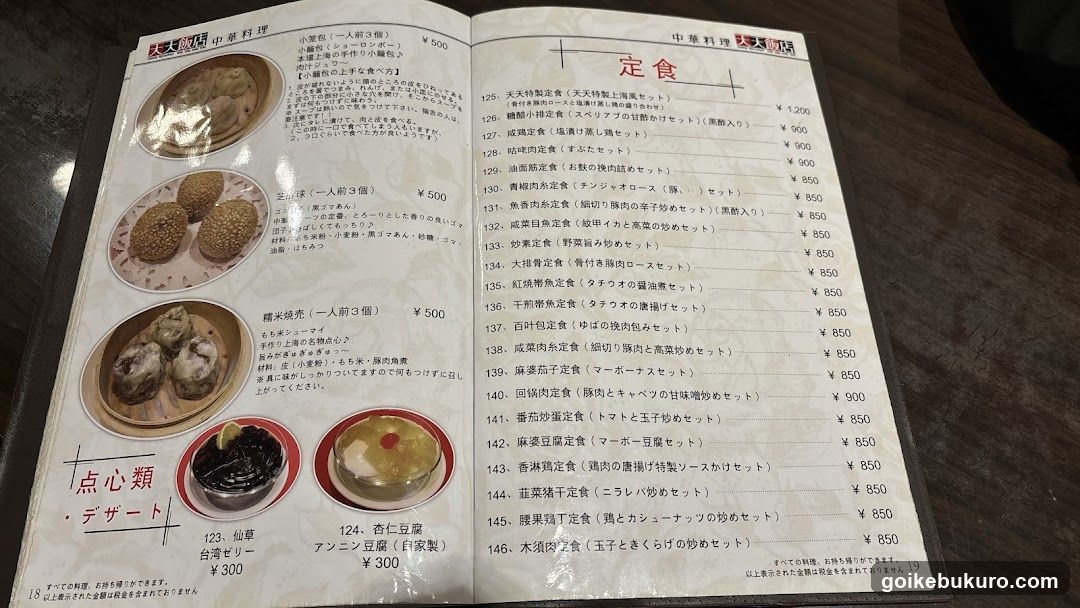 天天飯店 中華料理
小篭包（一人前３個） ¥500
小籠包（ショーロンポー）
本場上海の手作り小籠包♪
肉汁ジュウ～
【小籠包の上手な食べ方】
1. 皮が破れないように頭のところの皮をひねってある
ところを箸でつまみ、れんげ、または小皿にのせる。
2. 皮の下の部分に小さな穴を開け、そこからスープを
まずは何もつけずに味わう。
※スープは熱いので気をつけて下さい。猫舌の人は、
要注意です！！
3. 次にタレに漬けて、肉と皮を食べる。
（この時に一口で食べてしまう人もいますが、
２、３口ぐらいで食べた方が良いようです）
芝麻球（一人前３個） ¥500
団子♪香ばしくてもっちり♪
材料：もち米粉・小麦粉・黒ゴマあん・砂糖・ゴマ・
油脂・はちみつ
糯米焼売（一人前３個） ¥500
もち米シューマイ
手作り上海の名物点心♪
旨みがぎゅぎゅぎゅっ～
材料：皮（小麦粉）・もち米・豚肉角煮
※具に味がしっかりついてますので何もつけずに召し
上がってください。
点心類
・デザート
123、仙草
台湾ゼリー
¥300
124、杏仁豆腐
アンニン豆腐（自家製）
¥300
すべての料理、お持ち帰りができます。
18 以上表示された金額は税金を含まれておりません
中華料理 天天飯店
定食
125、天天特製定食（天天特製上海風セット） ¥1,200
（骨付き豚肉ロースと塩漬け蒸し鶏の盛り合わせ）
126、糖醋小排定食（スペリアブの甘酢かけセット）（黒酢入り） ¥900
127、咸鶏定食（塩漬け蒸し鶏セット） ¥900
128、咕咾肉定食（すぶたセット） ¥900
129、油面筋定食（お麩の挽肉詰めセット） ¥850
130、青椒肉糸定食（チンジャオロース（豚、）セット） ¥850
131、魚香肉糸定食（細切り豚肉の辛子炒めセット）（黒酢入り） ¥850
132、咸菜目魚定食（紋甲イカと高菜の炒めセット） ¥850
133、炒素定食（野菜旨み炒めセット） ¥850
134、大排骨定食（骨付き豚肉ロースセット） ¥850
135、紅焼帯魚定食（タチウオの醤油煮セット） ¥850
136、干煎帯魚定食（タチウオの唐揚げセット） ¥850
137、百叶包定食（ゆばの挽肉包みセット） ¥850
138、咸菜肉糸定食（細切り豚肉と高菜炒めセット） ¥850
139、麻婆茄子定食（マーボーナスセット） ¥850
140、回锅肉定食（豚肉とキャベツの甘味噌炒めセット） ¥900
141、番茄炒蛋定食（トマトと玉子炒めセット） ¥850
142、麻婆豆腐定食（マーボー豆腐セット） ¥850
143、香淋鶏定食（鶏肉の唐揚げ特製ソースかけセット） ¥850
144、韮菜猪干定食（ニラレバ炒めセット） ¥850
145、腰果鶏丁定食（鶏とカシューナッツの炒めセット） ¥850
146、木須肉定食（玉子ときくらげの炒めセット） ¥850
すべての料理、お持ち帰りができます。
以上表示された金額は税金を含まれておりません 19
goikebukuro.com